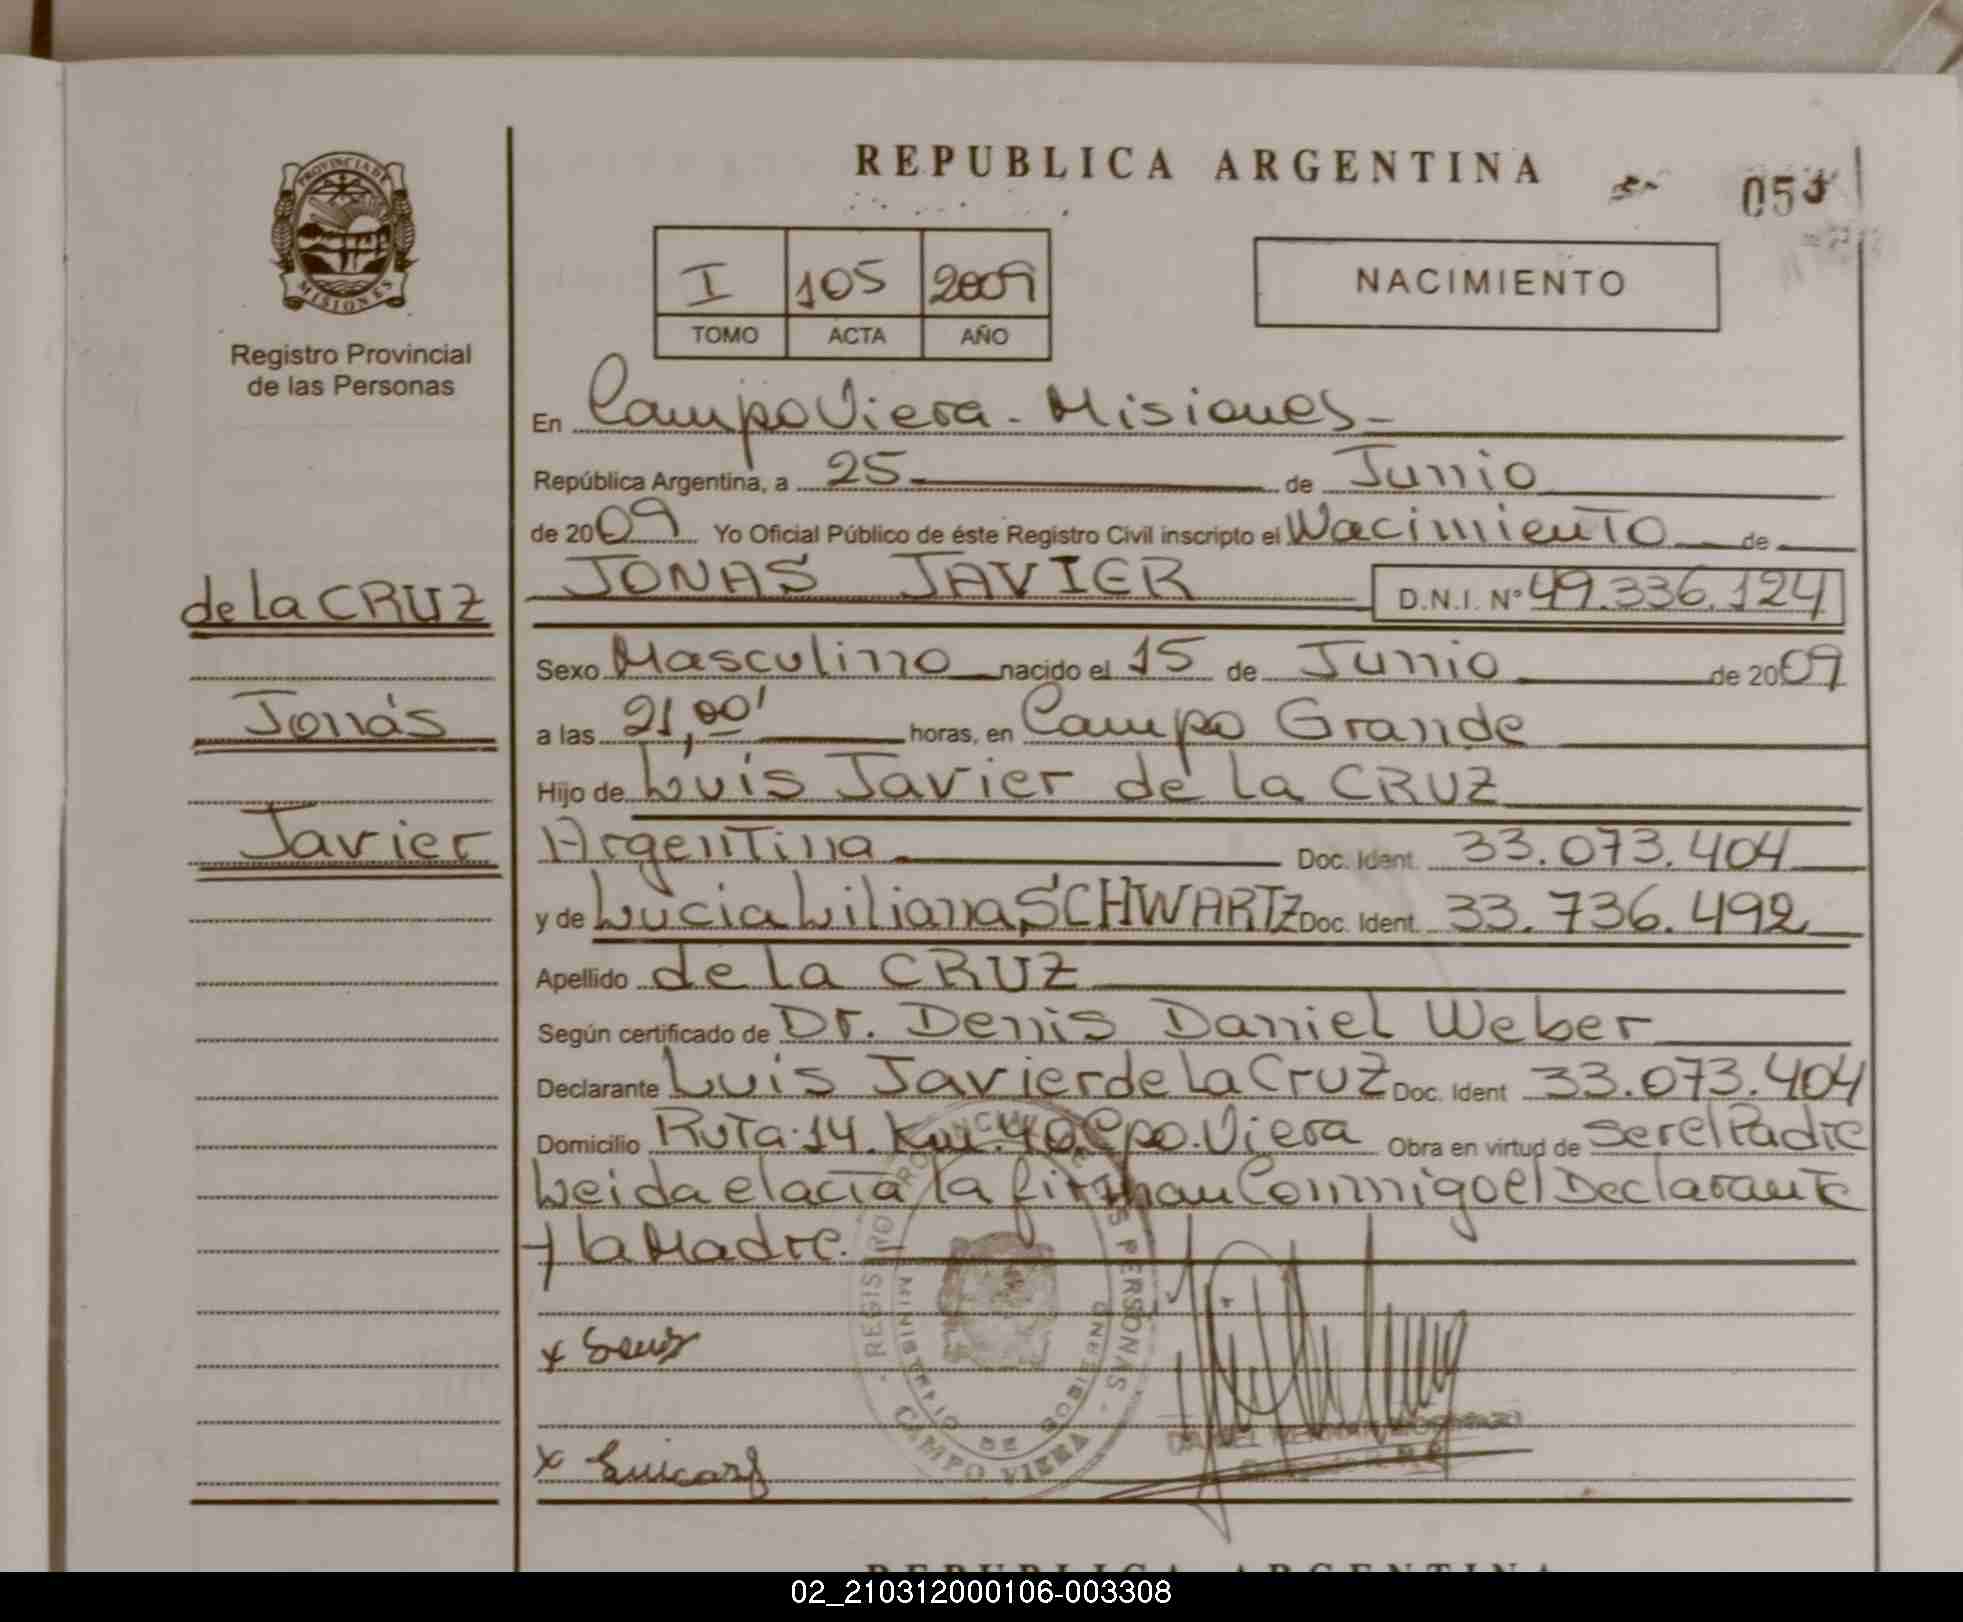 REPUBLICA ARGENTINA
05
PROVINCIA DE
MISIONES
Registro Provincial
de las Personas
I 105 2009
TOMO ACTA AÑO
NACIMIENTO
En Campo Viera - Misiones -
República Argentina, a 25 de Junio
de 2009 Yo Oficial Público de éste Registro Civil inscripto el Nacimiento de
JONAS JAVIER D.N.I. Nº 49.336.124
de la CRUZ
Jonás
Javier
Sexo Masculino nacido el 15 de Junio de 2009
a las 21,00' horas, en Campo Grande
Hijo de Luis Javier de la CRUZ
Argentina Doc. Ident. 33.073.404
y de Lucia Liliana SCHWARTZ Doc. Ident. 33.736.492
Apellido de la CRUZ
Según certificado de Dr. Denis Daniel Weber
Declarante Luis Javier de la Cruz Doc. Ident 33.073.404
Domicilio Ruta.14. Km.40 Cpo.Viera Obra en virtud de ser el Padre
Leida el acta la firman Conmigo el Declarante
y la Madre.
REGISTRO PROVINCIAL DE LAS PERSONAS
MINISTERIO DE GOBIERNO
CAMPO VIERA
REPUBLICA ARGENTINA
02_210312000106-003308